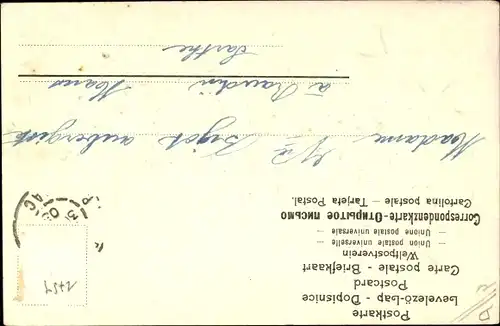 Postkarte
bevelező-lap - Dopisnice
Postcard
Carte postale - Briefkaart
Weltpostverein
— Union postale universelle —
— Unione postale universale —
Correspondenzkarte-Открытое письмо
Cartolina postale — Tarjeta Postal.
Madame Bigot aubergiste
à
Sarthe